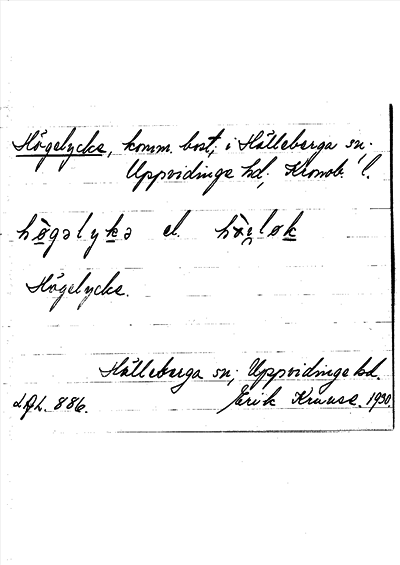 Högelycke, komm. bost, i Hälleberga sn.
Uppvidinge hd, Kronob. l.
högəlykə el.
Högelycke.
Hälleberga sn, Uppvidinge hd.
LAL. 886. Erik Kruuse. 1930.